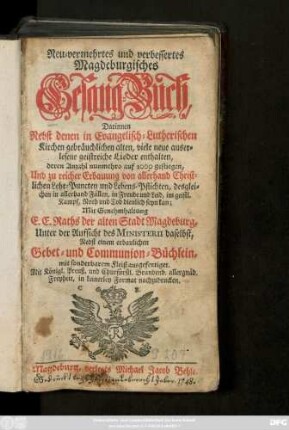 Neu-vermehrtes und verbessertes
Magdeburgisches
Gesang-Buch,
Darinnen
Nebst denen in Evangelisch-Lutherischen
Kirchen gebräuchlichen alten, viele neue auser-
lesene geistreiche Lieder enthalten,
deren Anzahl nunmehro auf gestiegen,
Und zu reicher Erbauung von allerhand Christ-
lichen Lehr-Puncten und Lebens-Pflichten, desglei-
chen in allerhand Fällen, in Freude und Leid, im geistl.
Kampf, Noth und Tod dienlich seyn kan;
Mit Genehmhaltung
E. E. Raths der alten Stadt Magdeburg,
Unter der Aufsicht des MINISTERII daselbst,
Nebst einem erbaulichen
Gebet- und Communion-Büchlein,
mit sonderbarem Fleiß ausgefertiget.
Mit Königl. Preuß. und Churfürstl. Brandenb. allergnäd.
Freyheit, in keinerley Format nachzudrucken.
Magdeburg, verlegts Michael Jacob Behle.
1748.